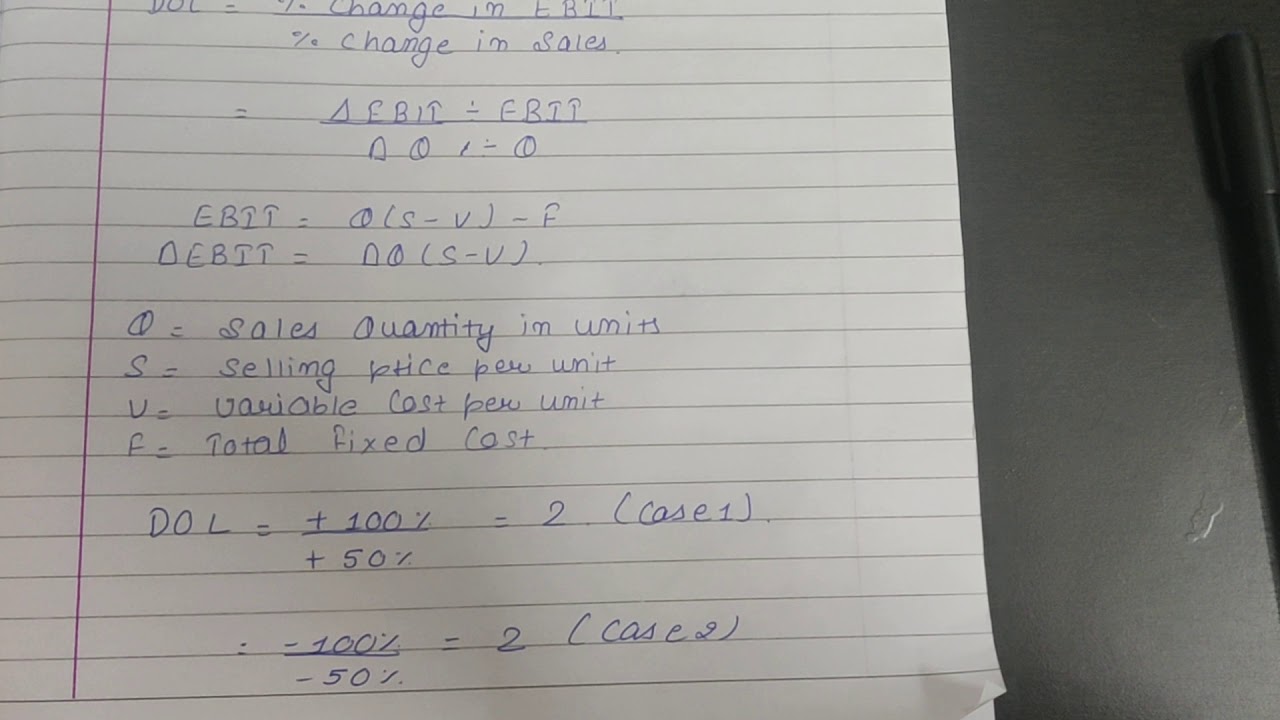 DOL = % Change in EBIT
% Change in Sales.
= Δ EBIT ÷ EBIT
Δ Q ÷ Q
EBIT = Q(S-V) - F
ΔEBIT = ΔQ(S-V).
Q = Sales Quantity in units
S = Selling price per unit
V = Variable Cost per unit
F = Total Fixed Cost.
DOL = +100% = 2 (Case1).
+50%
: -100% = 2 (Case2)
-50%.